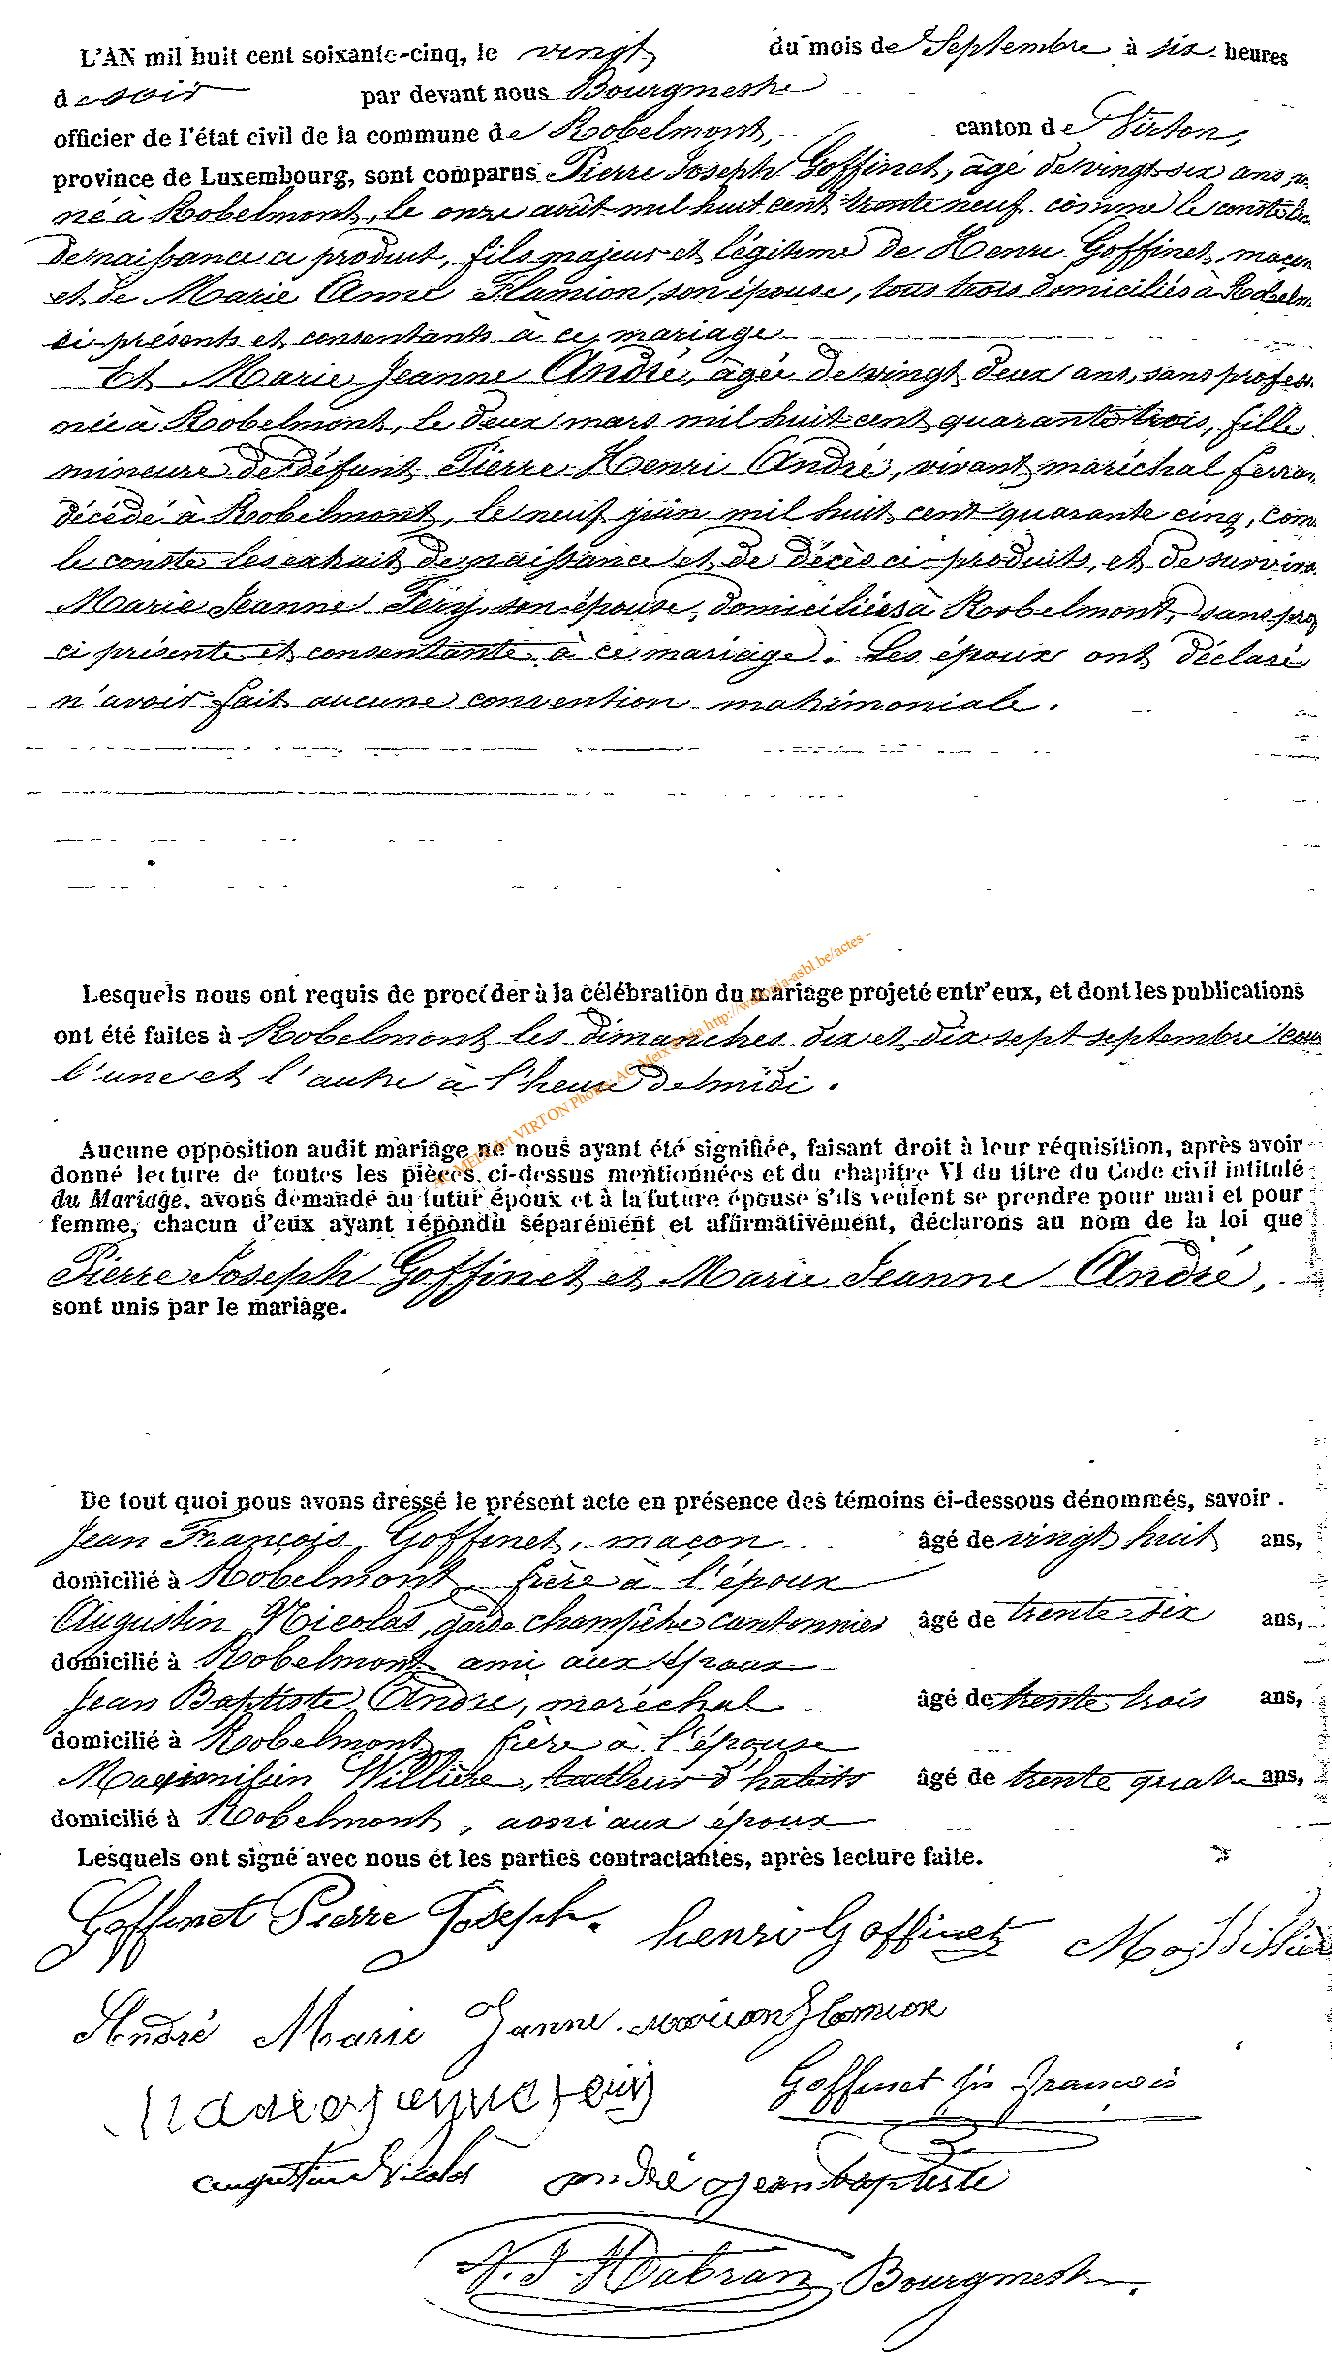 L'AN mil huit cent soixante-cinq, le vingt du mois de Septembre à six heures
de soir par devant nous Bourgmestre
officier de l'état civil de la commune de Robelmont, canton de Virton,
province de Luxembourg, sont comparus Pierre Joseph Goffinet, âgé de vingt six ans,
né à Robelmont, le onze août mil huit cent trente neuf comme le conste
de naissance ci produit, fils majeur et légitime de Henri Goffinet, maçon
et de Marie Anne Flamion, son épouse, tous trois domiciliés à Robelm
ci présents et consentants à ce mariage
Et Marie Jeanne André, âgée de vingt deux ans, sans profess
née à Robelmont, le deux mars mil huit cent quarante trois, fille
mineure de défunt Pierre Henri André, vivant maréchal ferran
décédé à Robelmont, le neuf juin mil huit cent quarante cinq, com
le conste les extrait de naissance et de décès ci-produits, et de survivan
Marie Jeanne Féry, son épouse, domiciliées à Robelmont, sans pro
ci présente et consentante à ce mariage. Les époux ont déclaré
n'avoir fait aucune convention matrimoniale.
Lesquels nous ont requis de procéder à la célébration du mariage projeté entr'eux, et dont les publications
ont été faites à Robelmont les dimanches dix et dix sept septembre cou
l'une et l'autre à l'heure de midi.
Aucune opposition audit mariage ne nous ayant été signifiée, faisant droit à leur réquisition, après avoir
donné lecture de toutes les pièces ci-dessus mentionnées et du chapitre VI du titre du Code civil intitulé
du Mariage, avons demandé au futur époux et à la future épouse s'ils veulent se prendre pour mari et pour
femme, chacun d'eux ayant répondu séparément et affirmativement, déclarons au nom de la loi que
Pierre Joseph Goffinet et Marie Jeanne André,
sont unis par le mariage.
De tout quoi nous avons dressé le présent acte en présence des témoins ci-dessous dénommés, savoir.
Jean François Goffinet, maçon âgé de vingt huit ans,
domicilié à Robelmont, frère à l'époux
Augustin Nicolas, garde champêtre cantonnier âgé de trente six ans,
domicilié à Robelmont ami aux époux
Jean Baptiste André, maréchal âgé de trente trois ans,
domicilié à Robelmont, frère à l'épouse
Maximilien Willière, tailleur d'habits âgé de trente quatre ans,
domicilié à Robelmont, ami aux époux
Lesquels ont signé avec nous et les parties contractantes, après lecture faite.
Goffinet Pierre Joseph. henri Goffinet Max Willière
André Marie Janne marian flamion
Marie jenne feriy Goffinet jn françois
augustin Nicolas andré jean baptiste
N. J. Habran Bourgmestre.